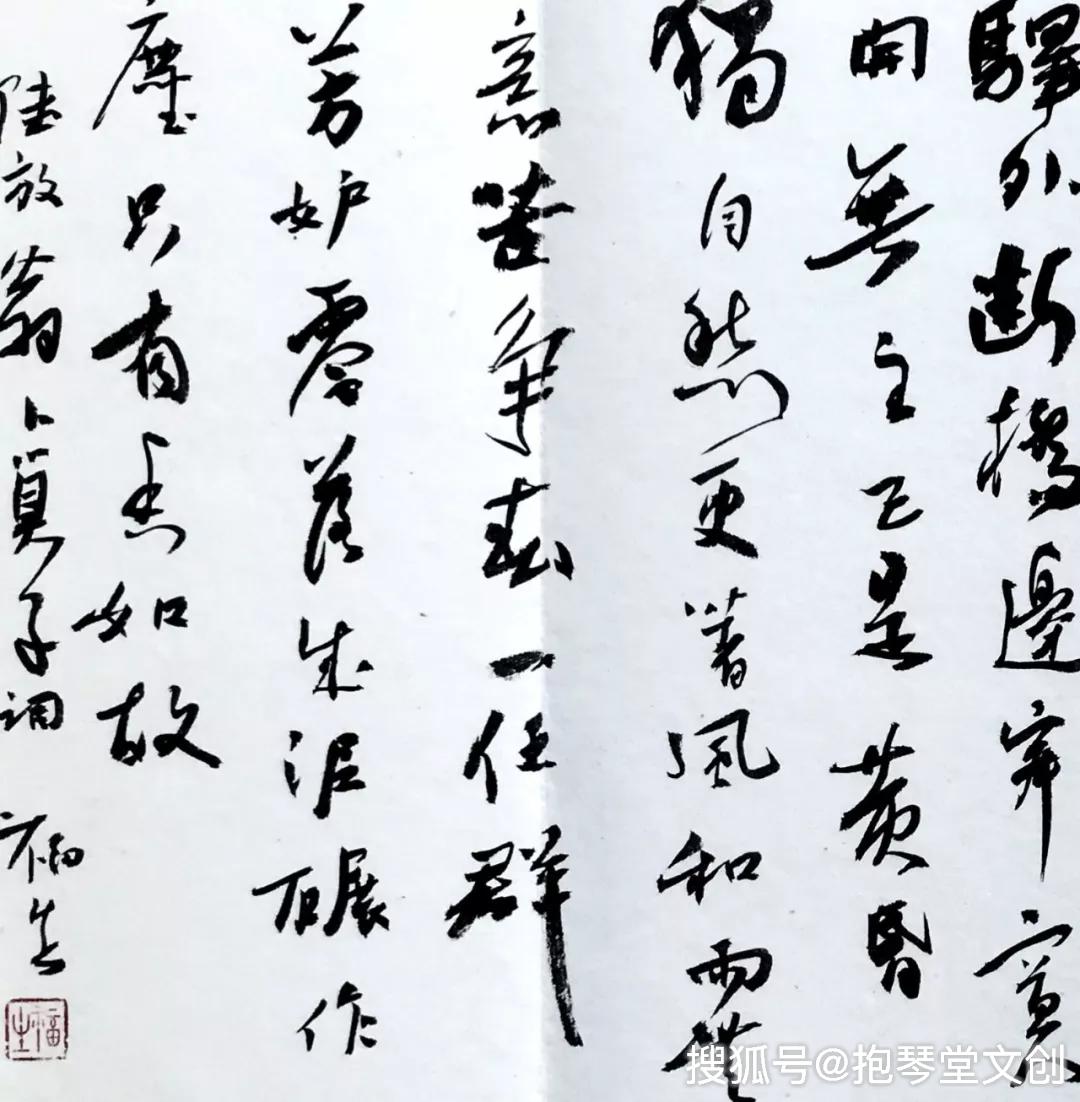 驛外斷橋邊寂寞
開無主已是黃昏
獨自愁更著風和雨無
意苦爭春一任群
芳妒零落成泥碾作
塵只有香如故
陸放翁卜算子調 福生
福生
搜狐号@抱琴堂文创